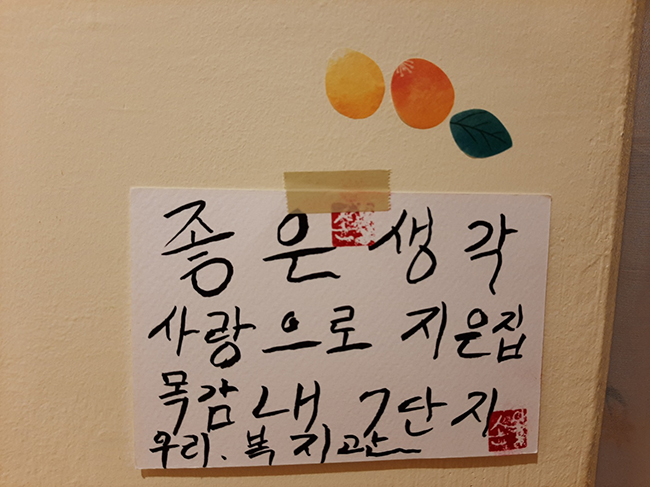 좋은 생각
사랑으로 지은집
목감 내 7단지
우리. 복지관